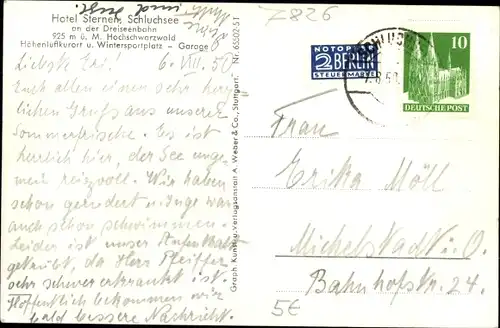 Z 826
Hotel Sternen, Schluchsee
an der Dreiseenbahn
925 m ü. M. Hochschwarzwald
Höhenluftkurort u. Wintersportplatz – Garage
Liebste Eri! 6. VIII. 50
Euch allen einen sehr herz-
lichen Gruß aus unserer
Sommerfrische. Es ist
herrlich hier, der See unge-
mein reizvoll. Wir haben
schon gerudert u. Inge war
auch schon schwimmen.
Leider ist unser Aufenthalt
getrübt, da Herr Pfeiffer
sehr schwer erkrankt ist.
Hoffentlich bekommen wir
bald bessere Nachricht.
Graph. Kunst- u. Verlagsanstalt A. Weber & Co., Stuttgart Nr. 6502-51
NOTOPFER
2 BERLIN
STEUERMARKE
SCHLUCHSEE
10
DEUTSCHE POST
Frau
Erika Möll
Michelstadt i. O.
Bahnhofstr. 24.
5€